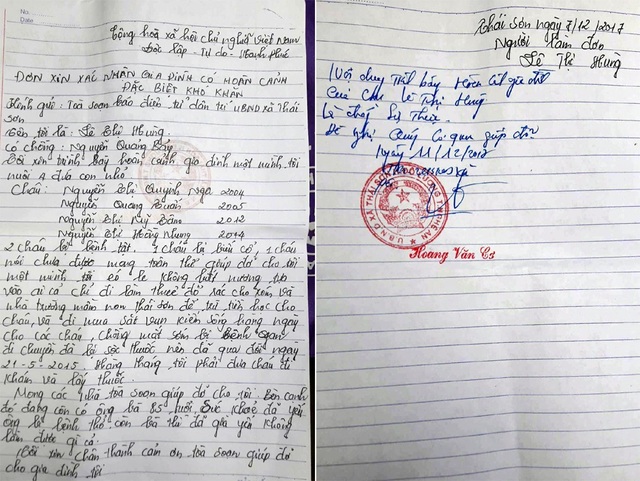 No.
Date
Cộng hoà xã hội chủ nghĩa Việt Nam
Độc lập - Tự do - Hạnh phúc
ĐƠN XIN XÁC NHẬN GIA ĐÌNH CÓ HOÀN CẢNH
ĐẶC BIỆT KHÓ KHĂN
Kính gửi: Toà soạn báo điện tử dân trí UBND xã Thái
Sơn
Tên tôi là: Lê Thị Hưng.
có chồng: Nguyễn Quang Bảy
Tôi xin trình bày hoàn cảnh gia đình một mình tôi
nuôi 4 đứa con nhỏ
Cháu: Nguyễn Thị Quỳnh Nga 2004
Nguyễn Quang Quân 2005
Nguyễn Thị Mỹ Tâm 2012
Nguyễn Thị Hồng Nhung 2014
2 cháu bị bệnh tật. 1 cháu bị bướu cổ, 1 cháu
nói chưa được mong toàn thể giúp đỡ cho tôi
một mình tôi không biết nương tựa
vào ai cố chỉ đi làm thuê đổ rác cho xóm và
nhà trường mầm non thái sơn để trừ tiền học cho
cháu, và đi mua sắt vụn kiếm sống hằng ngày
cho các cháu, chồng mất sớm bị bệnh gan
di chuyền đã bị sốc thuốc nên đã qua đời ngày
21-5-2015. Hàng tháng tôi phải đưa cháu đi
khám và lấy thuốc.
Mong các nhà toà soạn giúp đỡ cho tôi. Bên cạnh
đó đang còn có ông bà 85 tuổi sức khoẻ đã yếu
ông bị bệnh thở còn bà thì đã già yếu không
làm được gì cả.
Tôi xin chân thành cảm ơn toà soạn giúp đỡ
cho gia đình tôi
Thái Sơn ngày 7/12/2017
Người làm đơn
Lê Thị Hưng
của Chị Lê Thị Hưng
là đúng Sự Thực.
Đề nghị Cung Cơ quan giúp đỡ.
Ngày 11/12/2017
U.B.N.D XÃ THÁI SƠN
Hoàng Văn Cơ